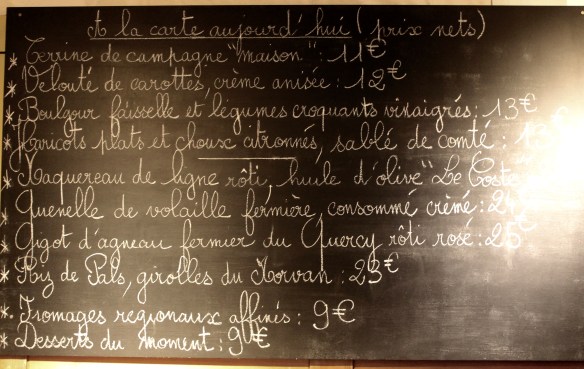 A la carte aujourd'hui (prix nets)
* Terrine de campagne "maison" : 11€
* Velouté de carottes, crème anisée : 12€
* Boulgour faisselle et légumes croquants vinaigrés : 13€
* Haricots plats et choux citronnés, sablé de comté :
* Maquereau de ligne rôti, huile d'olive "Le
* Quenelle de volaille fermière, consommé crémé :
* Gigot d'agneau fermier du Quercy rôti rosé : 25€
* Riz de Pals, girolles du Morvan : 23€
* Fromages regionaux affinés : 9€
* Desserts du moment : 9€